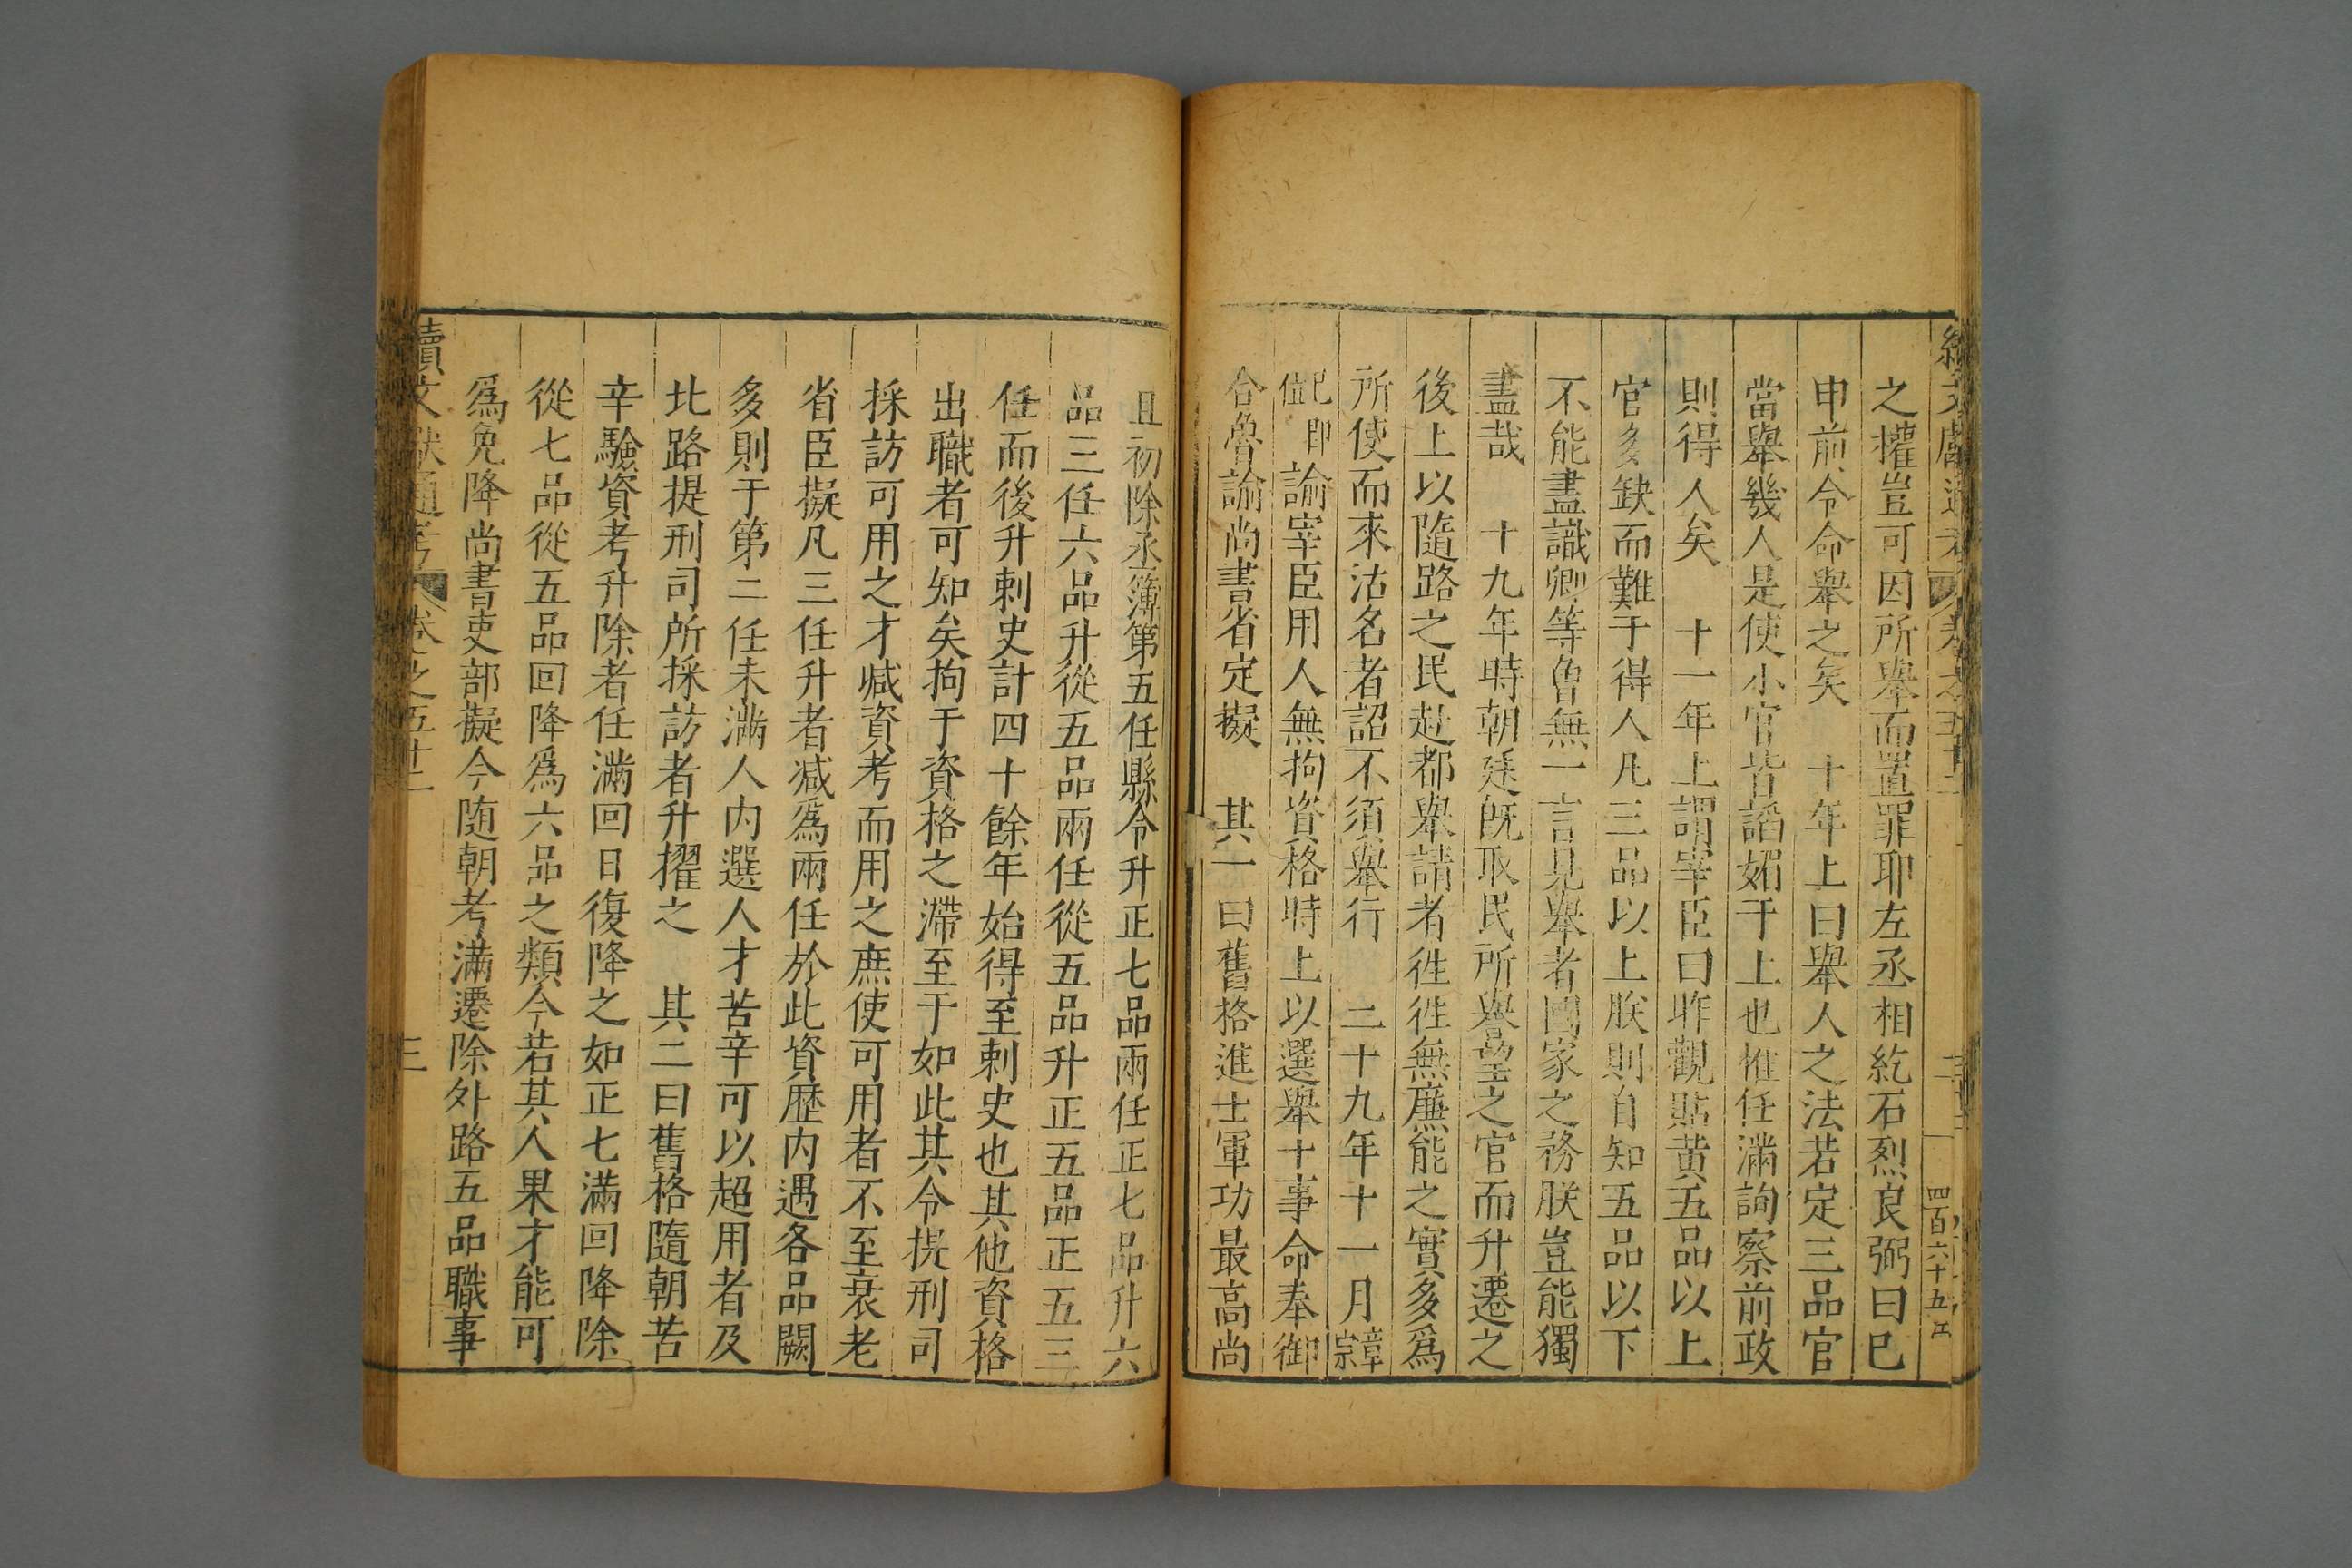 續文獻通考 卷之五十二 二 四百六十五 江
之權豈可因所舉而置罪耶左丞相紇石烈良弼曰已
申前令命舉之矣 十年上曰舉人之法若定三品官
當舉幾人是使小官皆謟媚于上也惟任滿詢察前政
則得人矣 十一年上謂宰臣曰昨觀貼黃五品以上
官多缺而難于得人凡三品以上朕則自知五品以下
不能盡識卿等曾無一言見舉者國家之務朕豈能獨
盡哉 十九年時朝廷旣取民所譽望之官而升遷之
後上以隨路之民赴都舉請者徃徃無廉能之實多爲
所使而來沽名者詔不須舉行 二十九年十一月章宗
已卽位諭宰臣用人無拘資格時上以選舉十事命奉御
合魯諭尚書省定擬 其一曰舊格進士軍功最高尚
且初除丞簿第五任縣令升正七品兩任正七品升六
品三任六品升從五品兩任從五品升正五品正五三
任而後升刺史計四十餘年始得至刺史也其他資格
出職者可知矣拘于資格之滯至于如此其令提刑司
採訪可用之才減資考而用之庶使可用者不至衰老
省臣擬凡三任升者減爲兩任於此資歷内遇各品闕
多則于第二任未滿人内選人才苦辛可以超用者及
北路提刑司所採訪者升擢之 其二曰舊格隨朝苦
辛驗資考升除者任滿回日復降之如正七滿回降除
從七品從五品回降爲六品之類今若其人果才能可
爲免降尚書吏部擬今隨朝考滿遷除外路五品職事
續文獻通考 卷之五十二 三